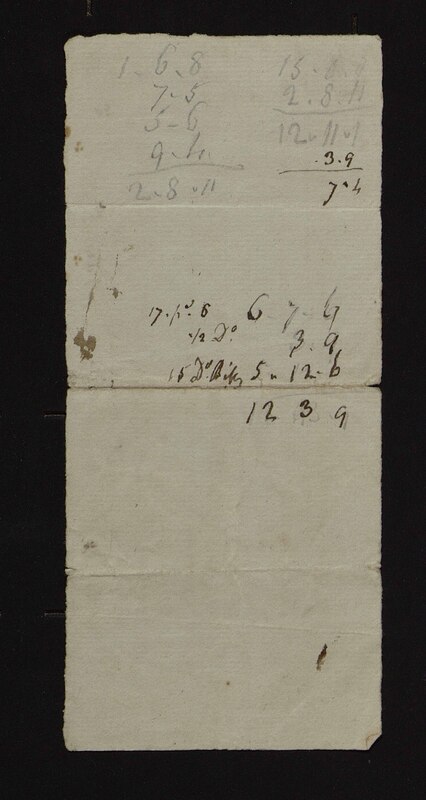 1 . 6 . 8
7 - 5
5 - 6
9 . 4
2 . 8 . 11
15 . 0 . 0
2 . 8 . 11
12 . 11 . 1
. 3 . 9
7 . 4
17 . 6 6 . 7 . 6
1/2 Do 3 . 9
15 Do. 5 . 12 . 6
12 3 9